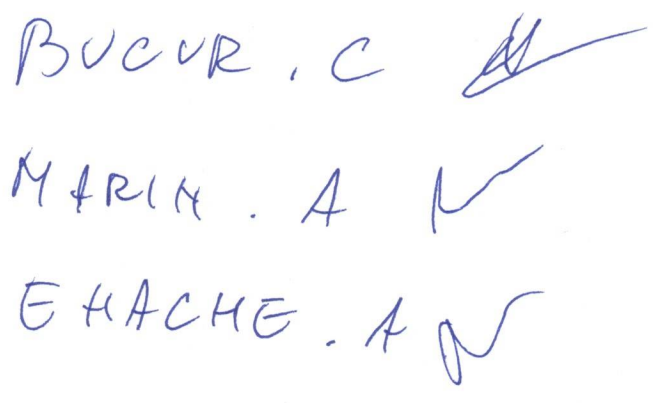 BUCUR . C
MARIN . A
ENACHE . A